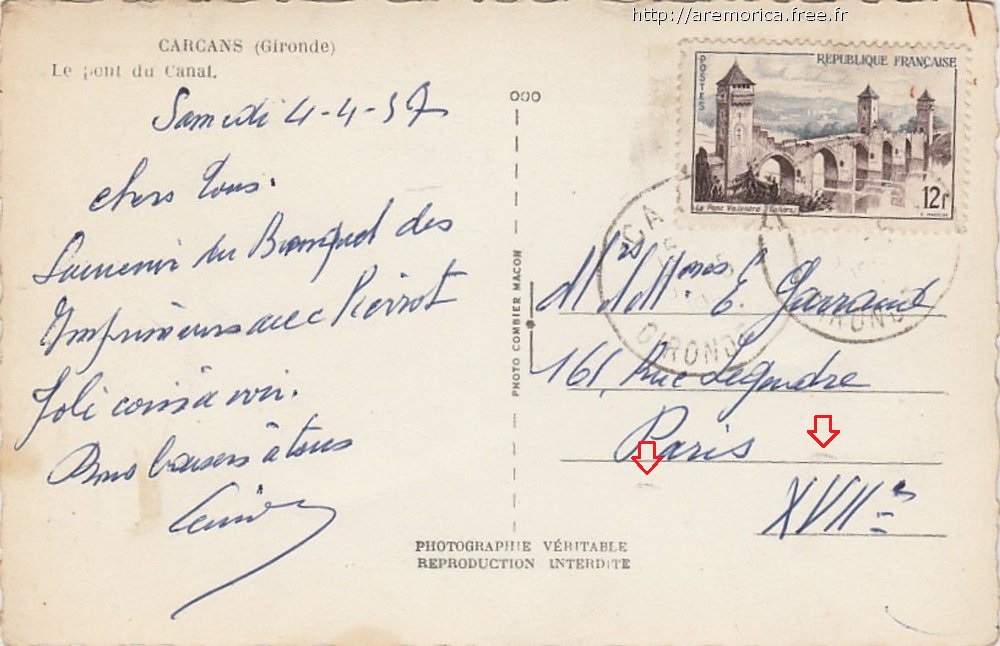 http://aremorica.free.fr
CARCANS (Gironde)
Le pont du Canal.
Samedi 4-4-57
chers Tous.
Souvenir du Banquet des
Imprimeurs avec Pierrot
Joli coin à voir.
Bons baisers à tous
OOO
PHOTO COMBIER MACON
PHOTOGRAPHIE VÉRITABLE
REPRODUCTION INTERDITE
POSTES
REPUBLIQUE FRANÇAISE
Le Pont Valentré (Cahors)
12f
CA
GIRONDE
GIRONDE
E. Garraud
161 Rue Legendre
Paris
XVIIe